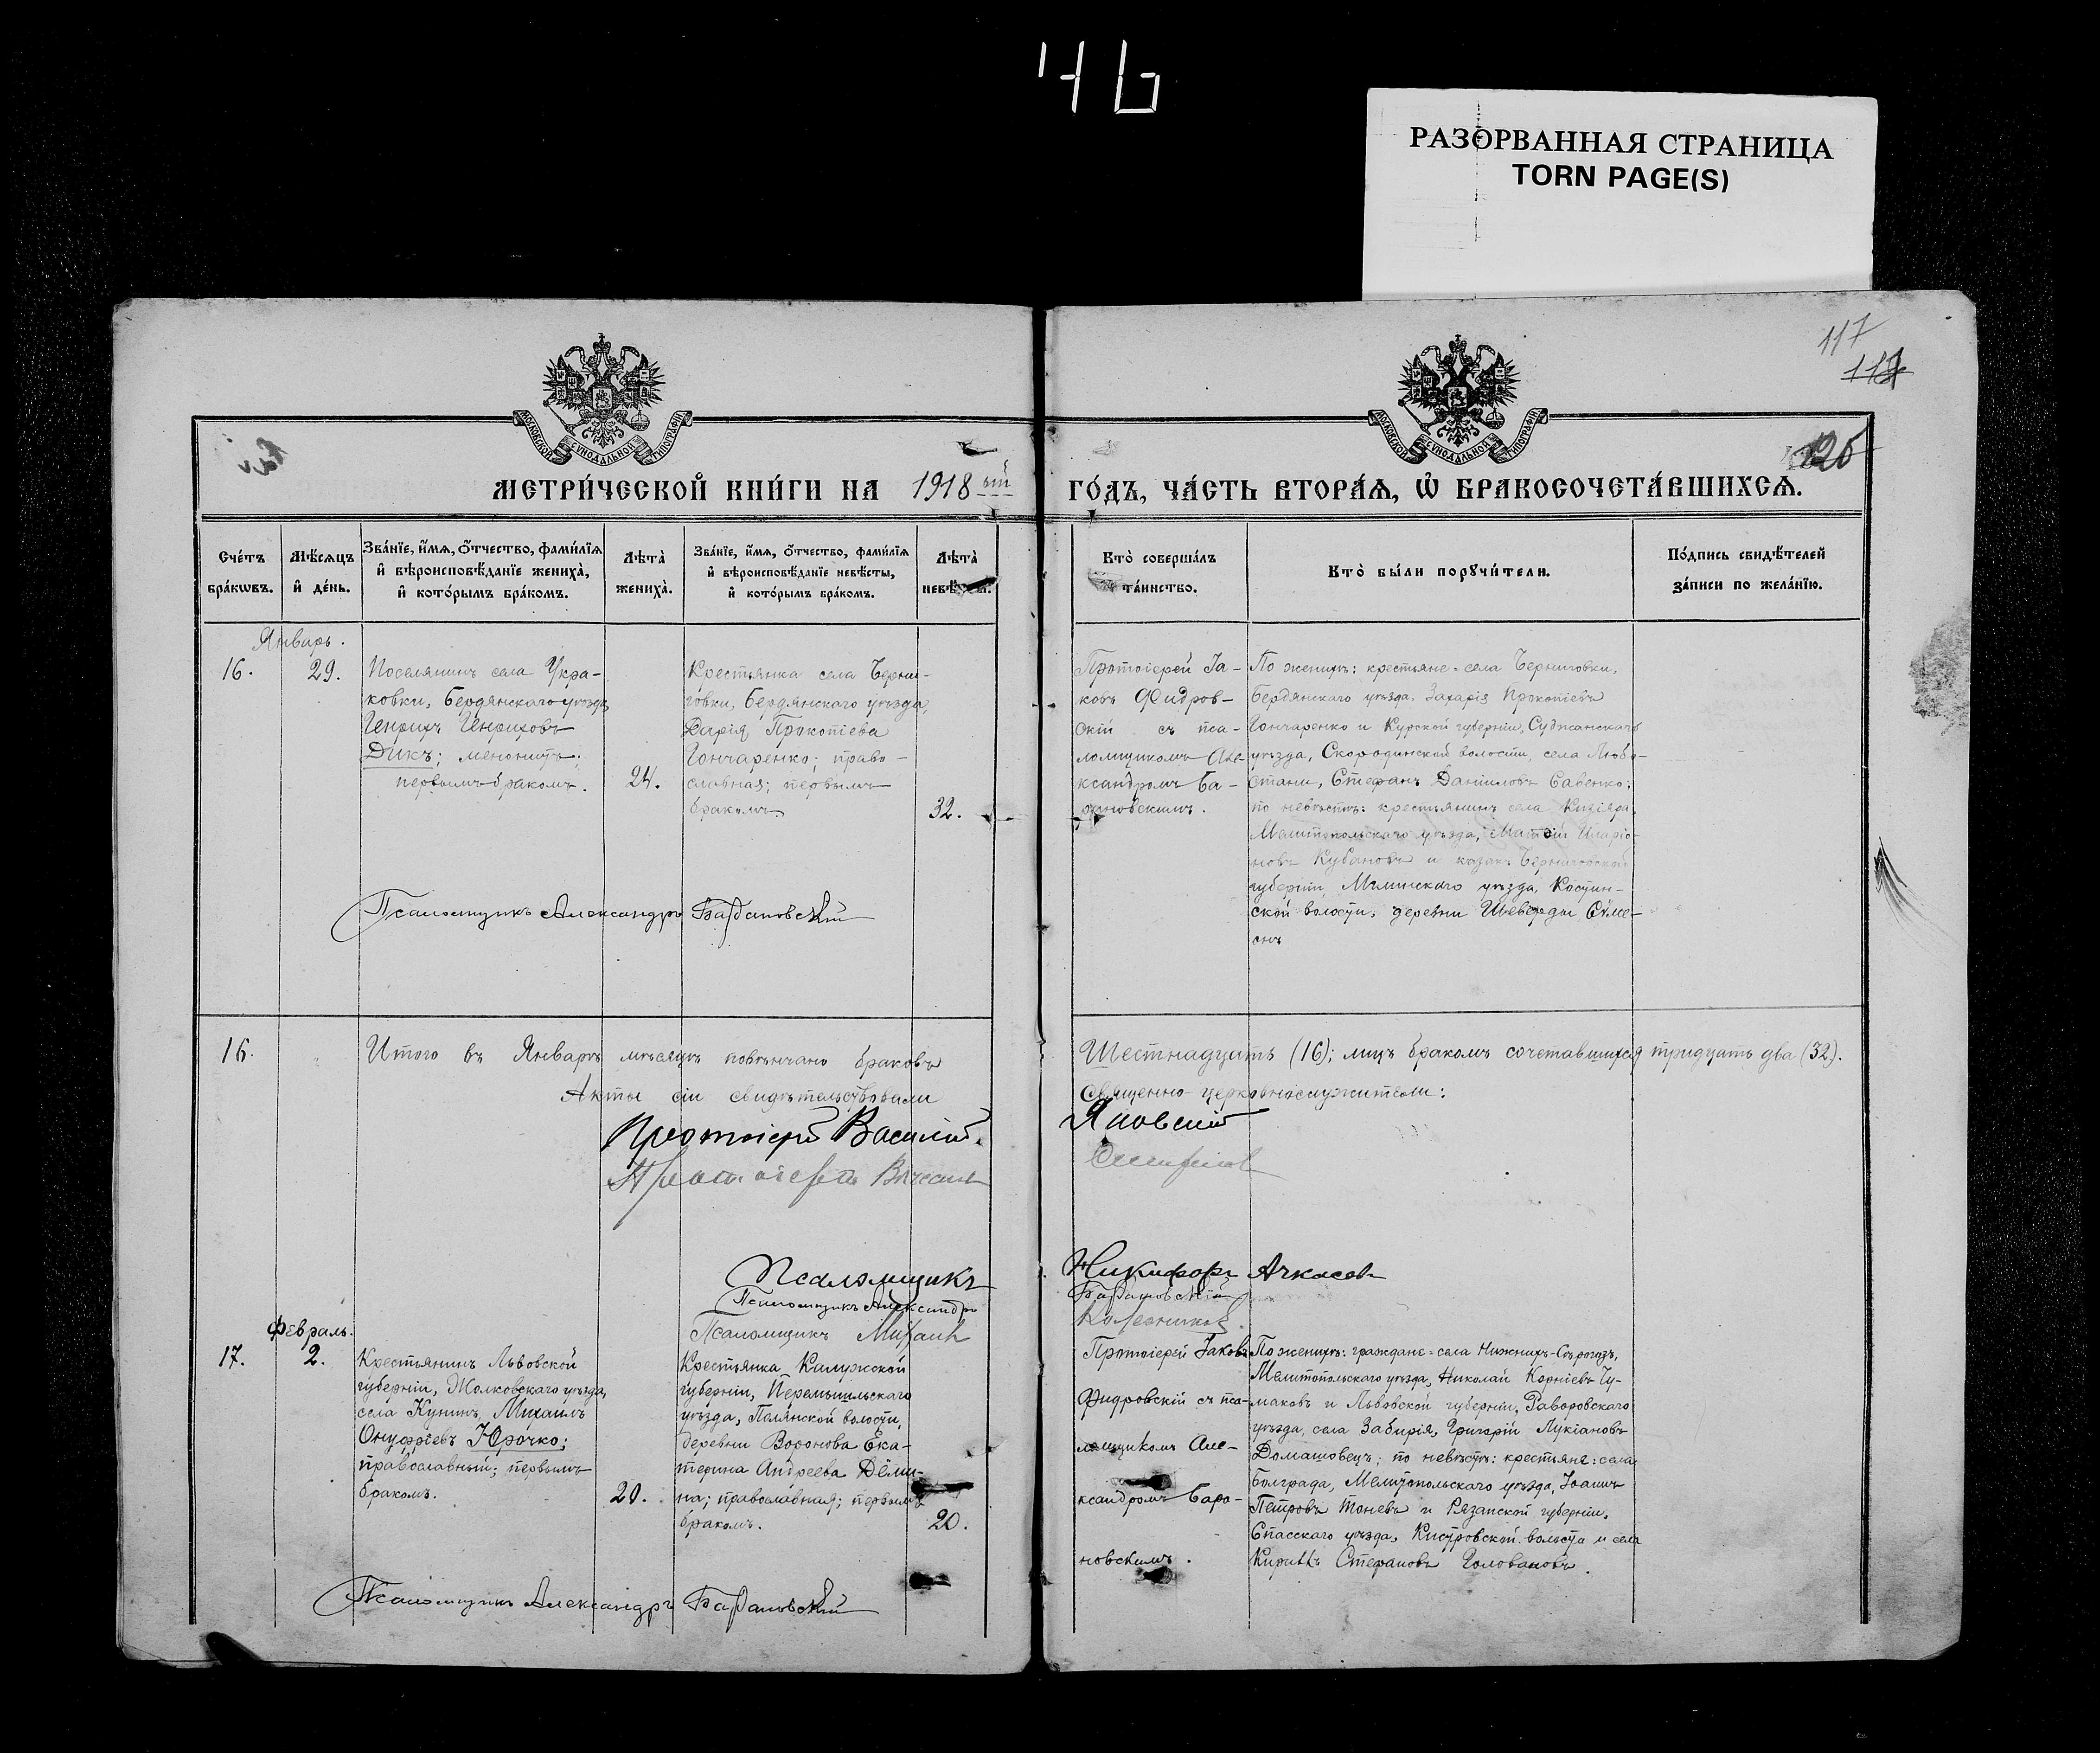 46
РАЗОРВАННАЯ СТРАНИЦА
TORN PAGE(S)
117
МОСКОВСКОЙ СѴНОДАЛЬНОЙ ТИПОГРАФІИ
МОСКОВСКОЙ СѴНОДАЛЬНОЙ ТИПОГРАФІИ
126
МЕТРИ́ЧЕСКОЙ КНИ́ГИ НА 1918 ый ГО́ДЪ, ЧА́СТЬ ВТОРА́Я, Ѡ БРАКОСОЧЕТА́ВШИХСЯ.
Сче́тъ бра́кѡвъ.
Мѣ́сяцъ и҆ де́нь.
Зва́нїе, и҆́мя, ѻ҆́тчество, фами́лїя и҆ вѣроисповѣ́данїе жениха̀, и҆ кото́рымъ бра́комъ.
Лѣта̀ жениха̀.
Зва́нїе, и҆́мя, ѻ҆́тчество, фами́лїя и҆ вѣроисповѣ́данїе невѣ́сты, и҆ кото́рымъ бра́комъ.
Лѣта̀ невѣ́сты.
Кто̀ соверша́лъ та́инство.
Кто̀ бы́ли порꙋчи́тели.
По́дпись свидѣ́телей за́писи по жела́нїю.
Январь.
16.
29.
Поселянинъ села Укра-
ковки, Бердянскаго уѣзда,
Генрихъ Генриховъ
Дикъ; менонитъ;
первымъ бракомъ.
24.
Крестьянка села Черни-
говки, Бердянскаго уѣзда,
Дарія Прокопіева
Гончаренко; право-
славная; первымъ
бракомъ.
32.
Протоіерей Іа-
ковъ Фидров-
скій съ пса-
ломщикомъ Але-
ксандромъ Ба-
рановскимъ.
По женихѣ: крестьяне села Черниговки,
Бердянскаго уѣзда, Захарія Прокопіевъ
Гончаренко и Курской губерніи, Суджанскаго
уѣзда, Скородинской волости, села Любо-
стани, Стефанъ Даніиловъ Савенко;
по невѣстѣ: крестьянинъ села Кизіяра,
Мелитопольскаго уѣзда, Матѳій Иларіо-
новъ Кубановъ и козакъ Черниговской
губерніи, Мглинскаго уѣзда, Костин-
ской волости, деревни Шевердъ Симе-
онъ
Псаломщикъ Александръ Барановскій
16.
Итого въ Январѣ мѣсяцѣ повѣнчано браковъ Шестнадцать (16); лицъ бракомъ сочетавшихся тридцать два (32).
Акты сіи свидѣтельствовали Священно-церковнослужители:
Протоіерей Василій Яновскій
Протоіерей
Псаломщикъ Никифоръ Ачкасовъ
Псаломщикъ Александръ Барановскій
Псаломщикъ Михаилъ
Февраль.
17.
2.
Крестьянинъ Львовской
губерніи, Жолковскаго уѣзда,
села Кунинъ, Михаилъ
Онуфріевъ Юрочко;
православный; первымъ
бракомъ.
20.
Крестьянка Калужской
губерніи, Перемышльскаго
уѣзда, Полянской волости,
деревни Воронова Ека-
терина Андреева Дёми-
на; православная; первымъ
бракомъ.
20.
Протоіерей Іаковъ
Фидровскій съ пса-
ломщикомъ Але-
ксандромъ Бара-
новскимъ.
По женихѣ: граждане: села Нижнихъ-Сѣрогозъ,
Мелитопольскаго уѣзда, Николай Корніевъ Чу-
маковъ и Львовской губерніи, Раворовскаго
уѣзда, села Забирія, Григорій Лукіановъ
Домашовецъ; по невѣстѣ: крестьяне: села
Болграда, Мелитопольскаго уѣзда, Іоаннъ
Петровъ Тоневъ и Рязанской губерніи,
Спасскаго уѣзда, Кистровской волости и села
Кириллъ Стефановъ Головановъ.
Псаломщикъ Александръ Барановскій